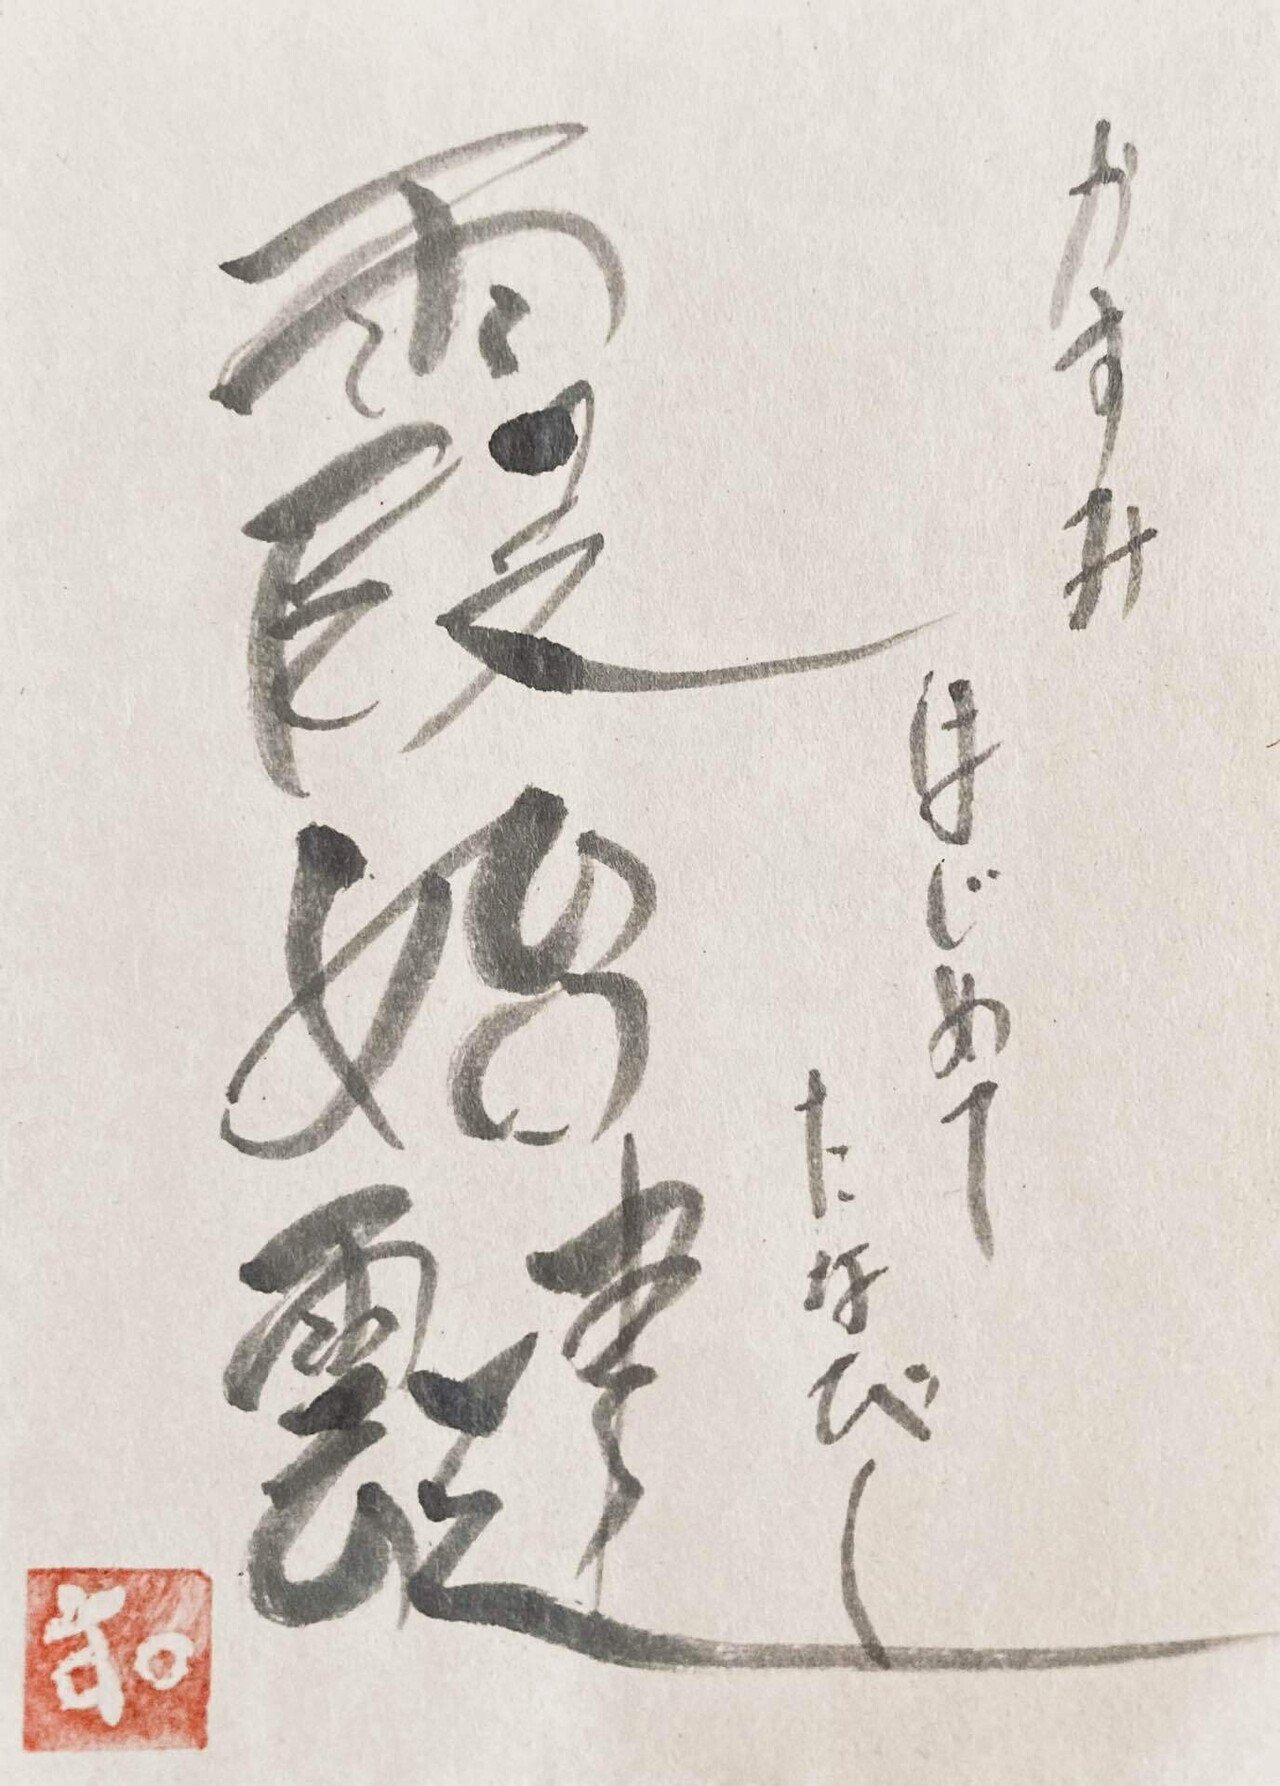 かすみ
はじめて
たなびく
霞始靆
和